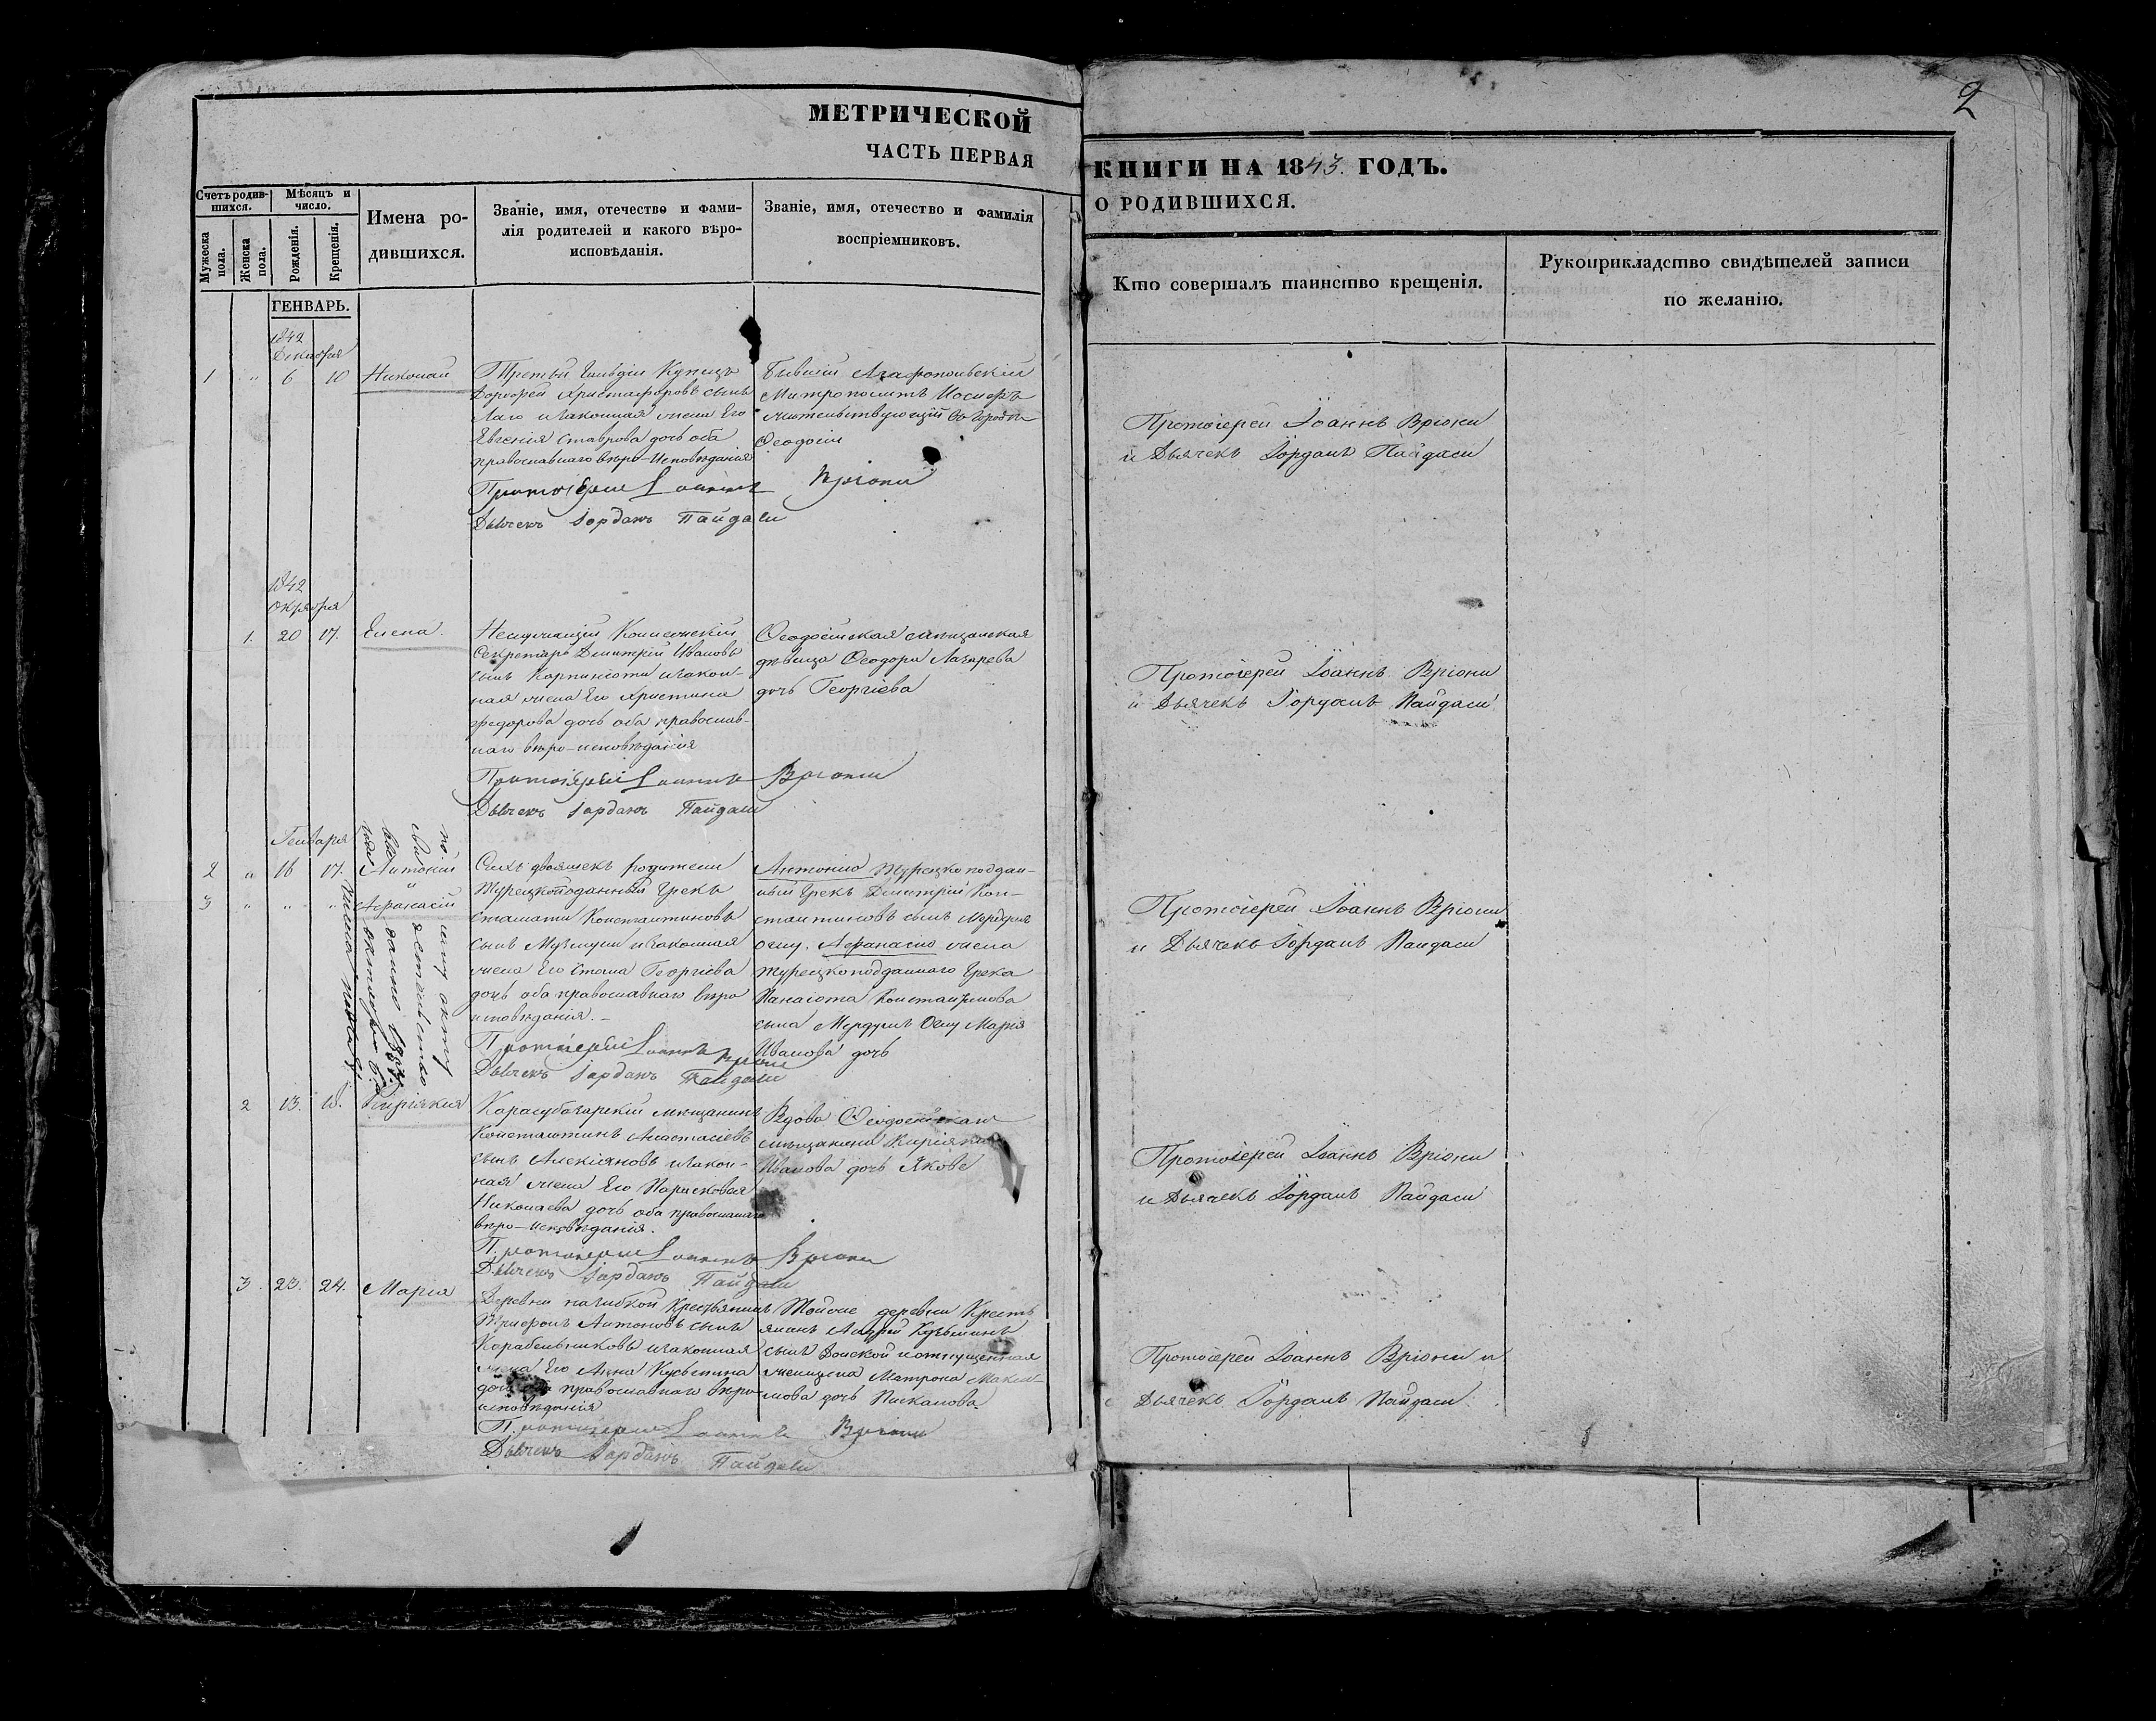 2
МЕТРИЧЕСКОЙ
ЧАСТЬ ПЕРВАЯ
Счетъ родив-
шихся.
Мѣсяцъ и
число.
Имена ро-
дившихся.
Званіе, имя, отечество и фами-
лія родителей и какого вѣро-
исповѣданія.
Званіе, имя, отечество и фамилія
воспріемниковъ.
Мужеска
пола.
Женска
пола.
Рожденія.
Крещенія.
ГЕНВАРЬ.
1842
Декабря
1 " 6 10 Николай
Третьей Гильдіи Купецъ
Дорофей Христофоровъ сынъ
Лаго и законная жена Его
Евгенія Ставрова дочь оба
православнаго вѣро-Исповѣданія
Бывшій Агафопольскій
Митрополитъ Иосифъ
жительствующій въ городѣ
Ѳеодосіи
Протоіерей Іоаннъ Вріони
Дьячекъ Іорданъ Пайдаси
1842
Октября
1. 20 17. Елена.
Неслужащій
Секретарь Дмитрій Ивановъ
сынъ и закон-
ная жена Его Христина
Федорова дочь оба православ-
наго вѣро-исповѣданія
Ѳеодосійская мѣщанская
дѣвица Ѳеодора Лазарева
дочь Георгіева
Протоіерей Іоаннъ Вріони
Дьячекъ Іорданъ Пайдаси
Генваря
2 " 16 17. Антоній
3 " " " Афанасій
Сихъ двояшекъ родители
Турецкоподанный Грекъ
Стамати Константиновъ
сынъ и законная
жена Его Стана Георгіева
дочь оба православнаго вѣро
исповѣданія.-
Антонію Турецкоподдан-
ный Грекъ Дмитрій Кон-
стантиновъ сынъ
Афанасію жена
Турецкоподданнаго Грека
Панаіота Константинова
сына Мердугис Оглу Марія
Иванова дочь
Протоіерей Іоаннъ Вріони
Дьячекъ Іорданъ Пайдаси
2 13. 18. Киріякія
Карасубазарскій мѣщанинъ
Константинъ Анастасіевъ
сынъ Алекіяновъ и закон-
ная жена Его Парасковія
Николаева дочь оба православнаго
вѣро-исповѣданія.
Вдова Ѳеодосійская
мѣщанина Киріякія
Иванова дочь Якове
Протоіерей Іоаннъ Вріони
Дьячекъ Іорданъ Пайдаси
3. 23. 24. Марія
Деревни Крестьянинъ
Антоновъ сынъ
Карабельниковъ и законная
жена Его Анна Кузьмина
дочь оба православнаго вѣро-
исповѣданія
Тойже деревни Кресть
янинъ Андрей Кузьминъ
сынъ Донской и отпущенная
женщина Матрона Макси-
мова дочь Пискакова.
Протоіерей Іоаннъ Вріони
Дьячекъ Іорданъ Пайдаси
КНИГИ НА 1843. ГОДЪ.
О РОДИВШИХСЯ.
Кто совершалъ таинство крещенія.
Рукоприкладство свидѣтелей записи
по желанію.
Протоіерей Іоаннъ Вріони
и Дьячекъ Іорданъ Пайдаси
Протоіерей Іоаннъ Вріони
и Дьячекъ Іорданъ Пайдаси
Протоіерей Іоаннъ Вріони
и Дьячекъ Іорданъ Пайдаси
Протоіерей Іоаннъ Вріони
и Дьячекъ Іорданъ Пайдаси
Протоіерей Іоаннъ Вріони и
Дьячекъ Іорданъ Пайдаси